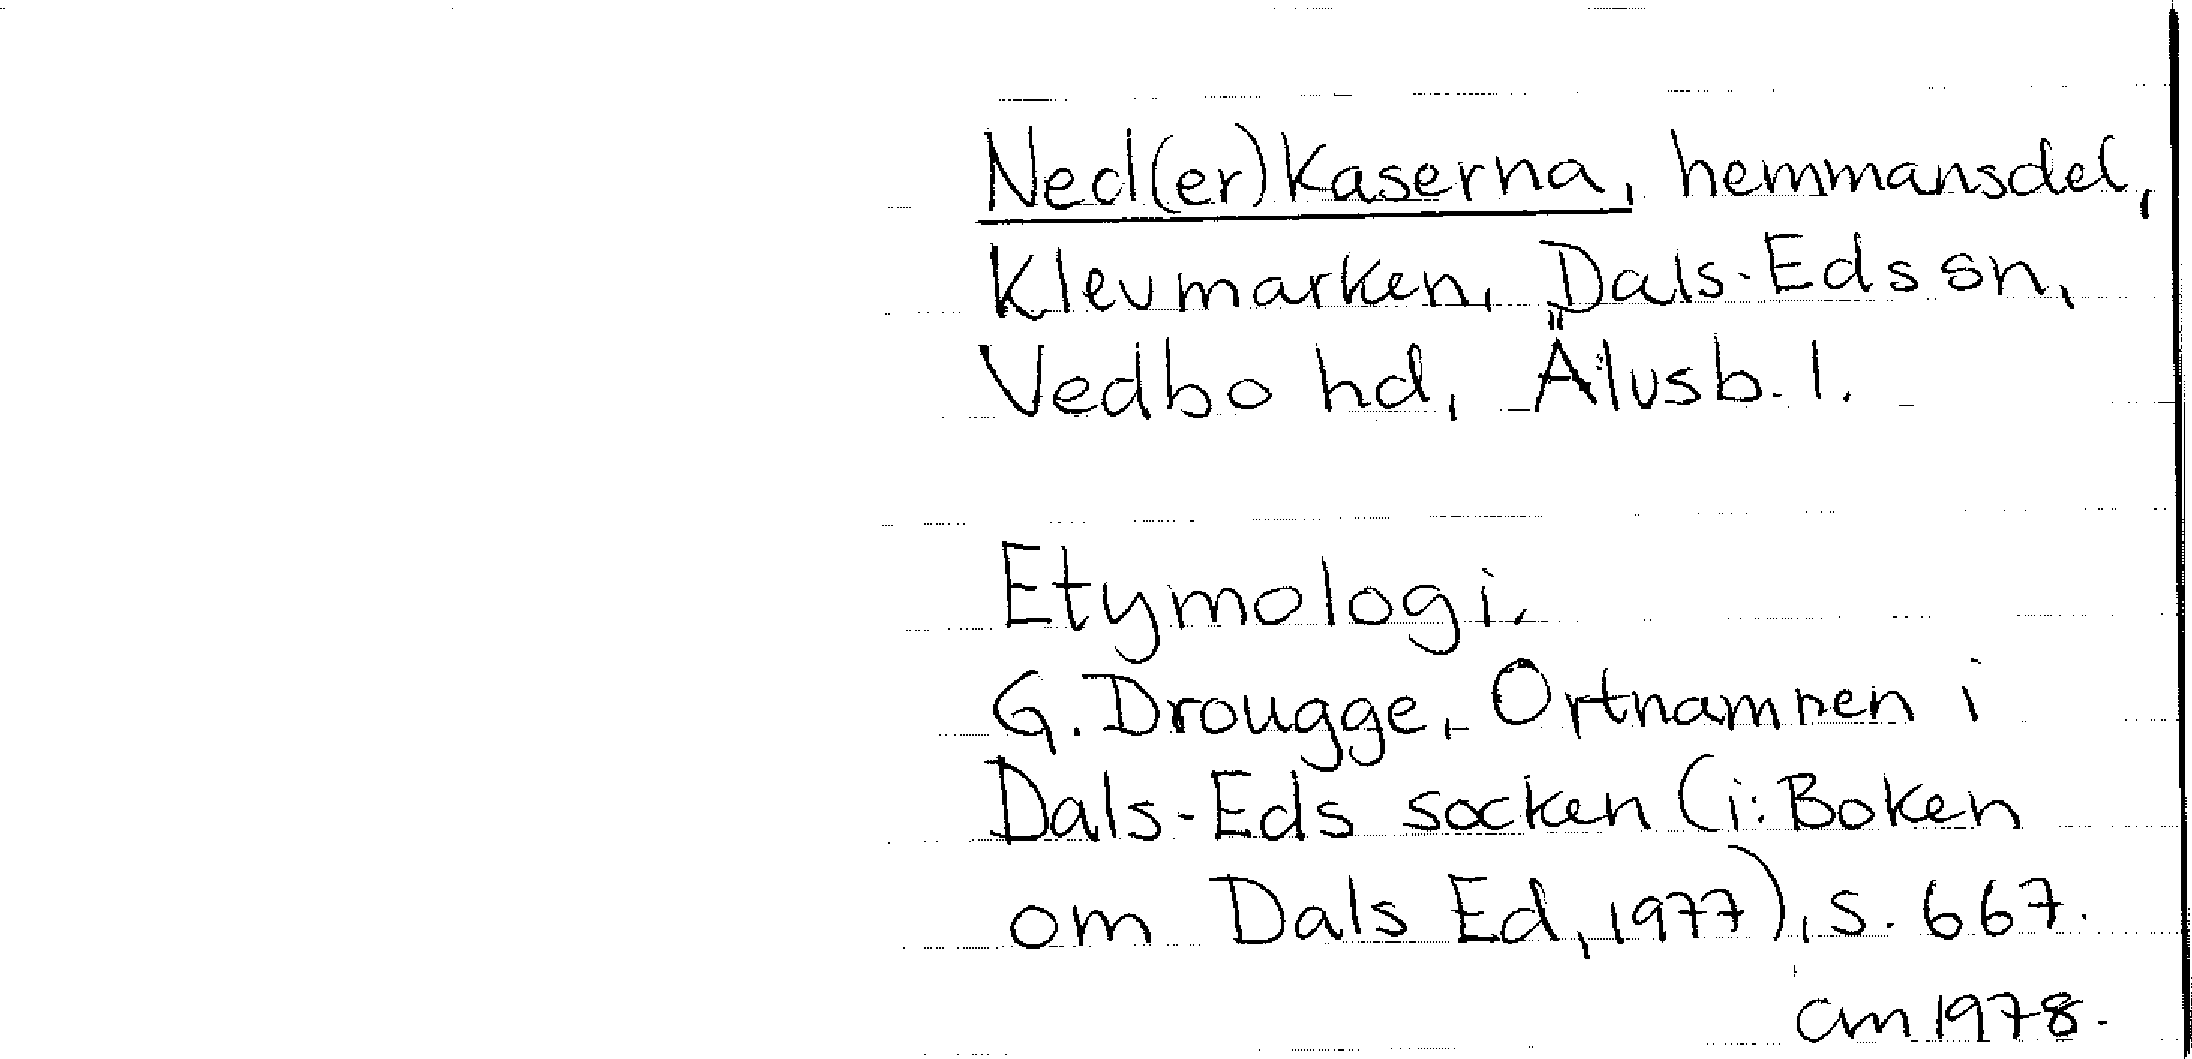 Ned(er)kaserna, hemmansdel,
Klevmarken, Dals-Eds sn,
Vedbo hd, Älvsb. l.
Etymologi.
G. Drougge, Ortnamnen i
Dals-Eds socken (i: Boken
om Dals Ed, 1977), s. 667.
am 1978.